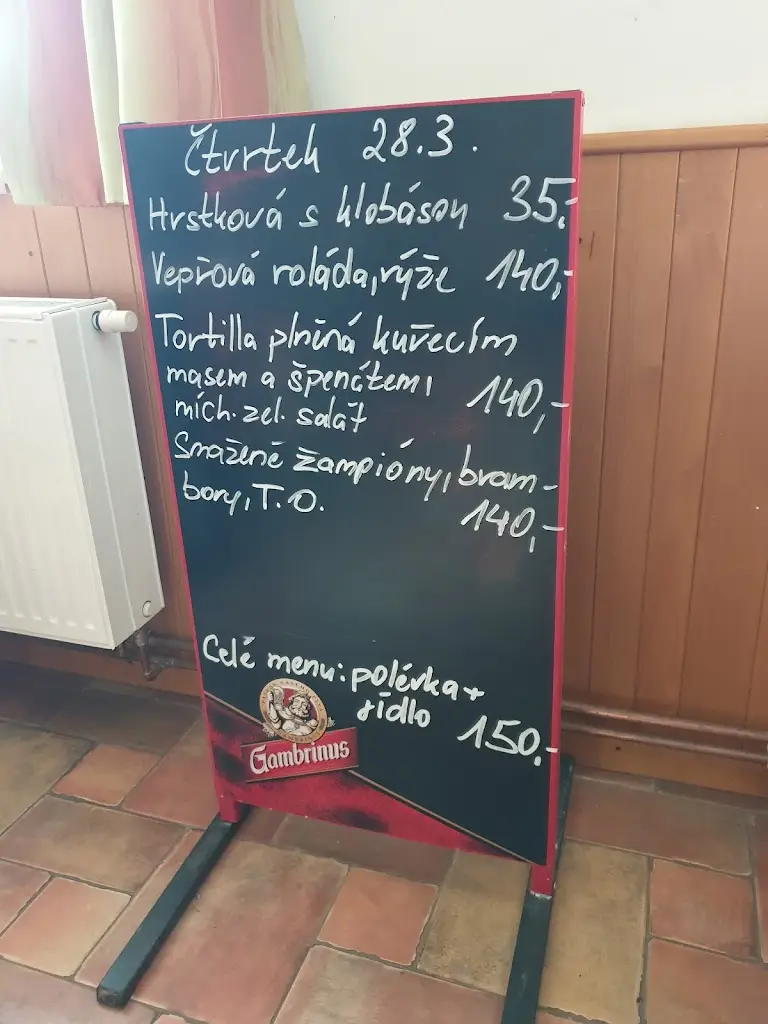 Čtvrtek 28.3.
Hrstková s klobásou 35,-
Vepřová roláda, rýže 140,-
Tortilla plněná kuřecím
masem a špenátem,
mích. zel. salát 140,-
Smažené žampióny, bram-
bory, T.O. 140,-
Celé menu: polévka +
jídlo 150,-
Gambrinus